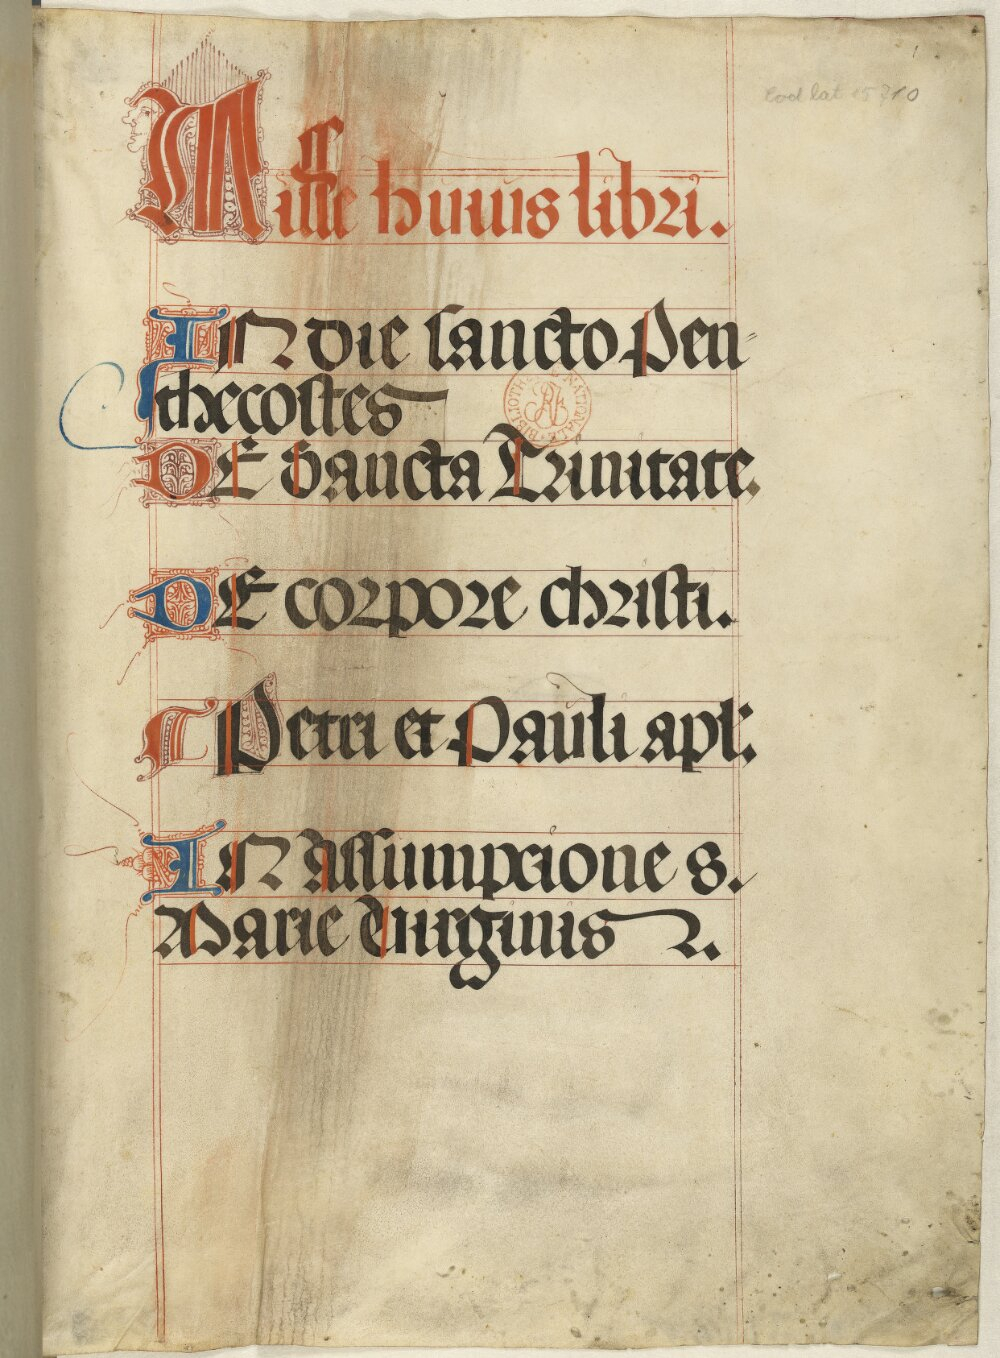 Cod lat 15710
Misse huius libri.
IN die sancto Pen-
thecostes
DE Sancta Trinitate.
DE corpore christi.
Petri et Pauli apl.
IN Assumpcione s.
Marie Virginis 2.
BIBLIOTH. NATIONALE